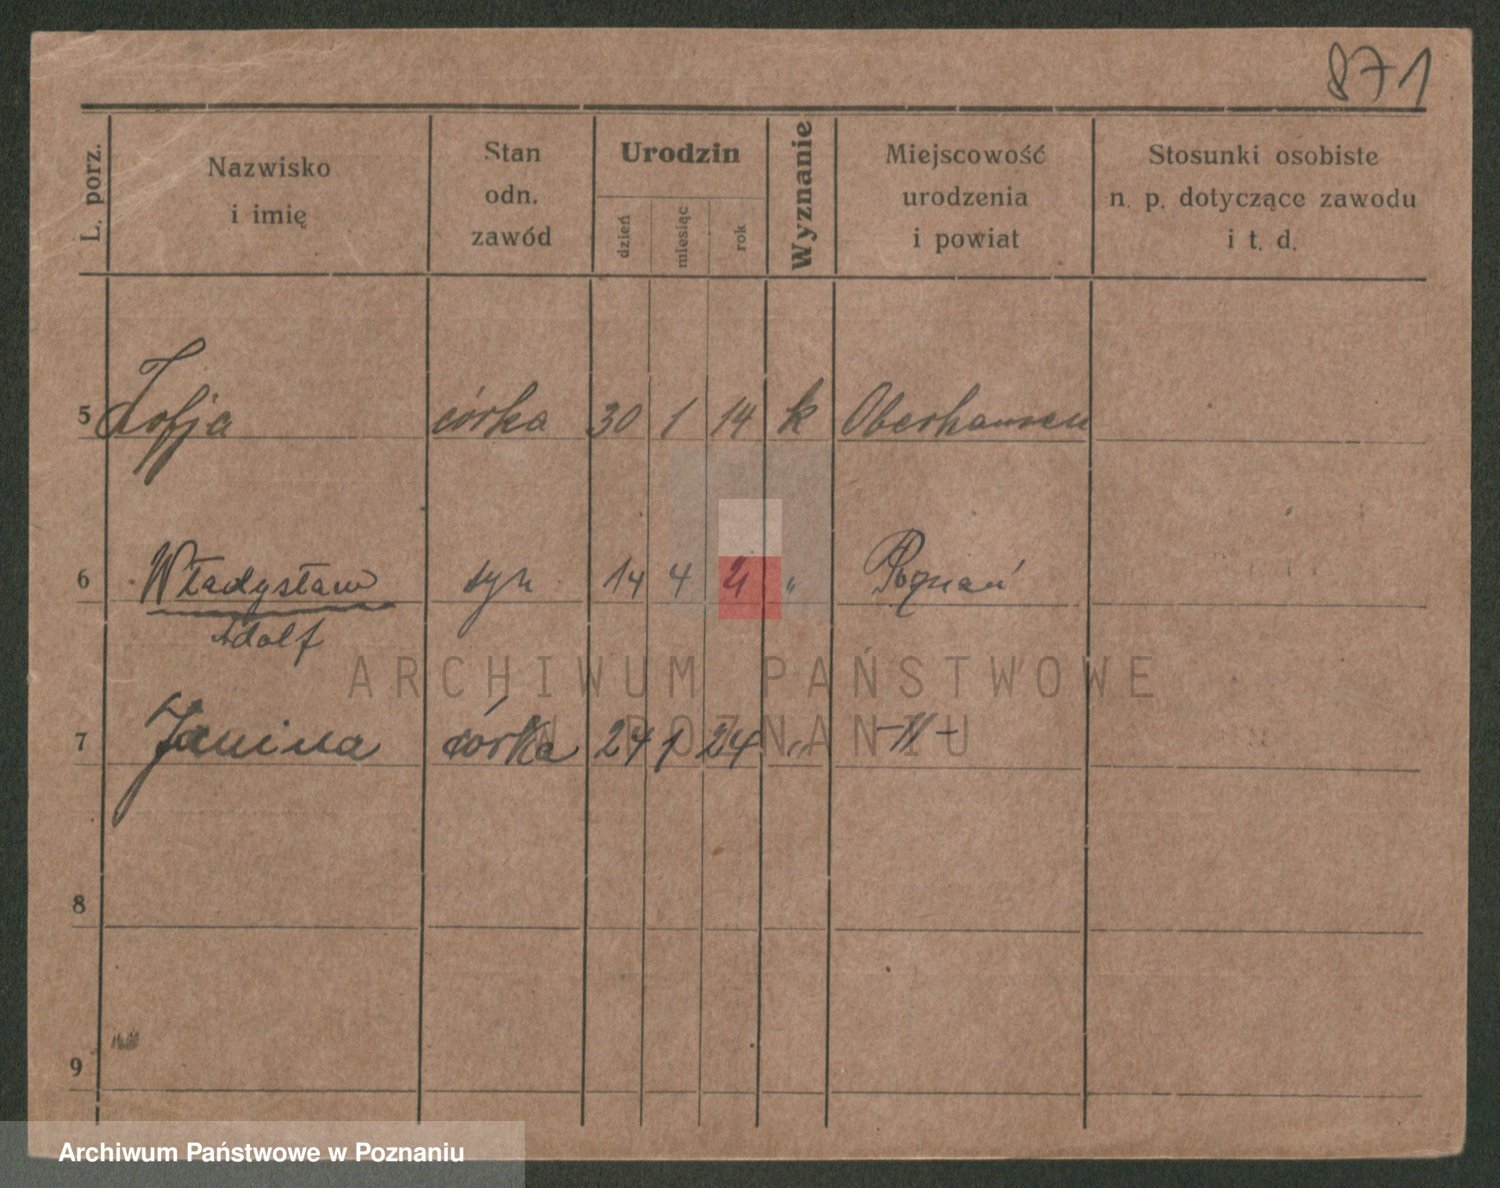 871
L. porz.
Nazwisko i imię
Stan odn. zawód
Urodzin
dzień miesiąc rok
Wyznanie
Miejscowość urodzenia i powiat
Stosunki osobiste n. p. dotyczące zawodu i t. d.
5 Zofja córka 30 1 14 k Oberhausen
6 Władysław syn 14 4 21 " Poznań
Adolf
7 Janina córka 24 1 24 " -"-
8
9
ARCHIWUM PAŃSTWOWE
W POZNANIU
Archiwum Państwowe w Poznaniu